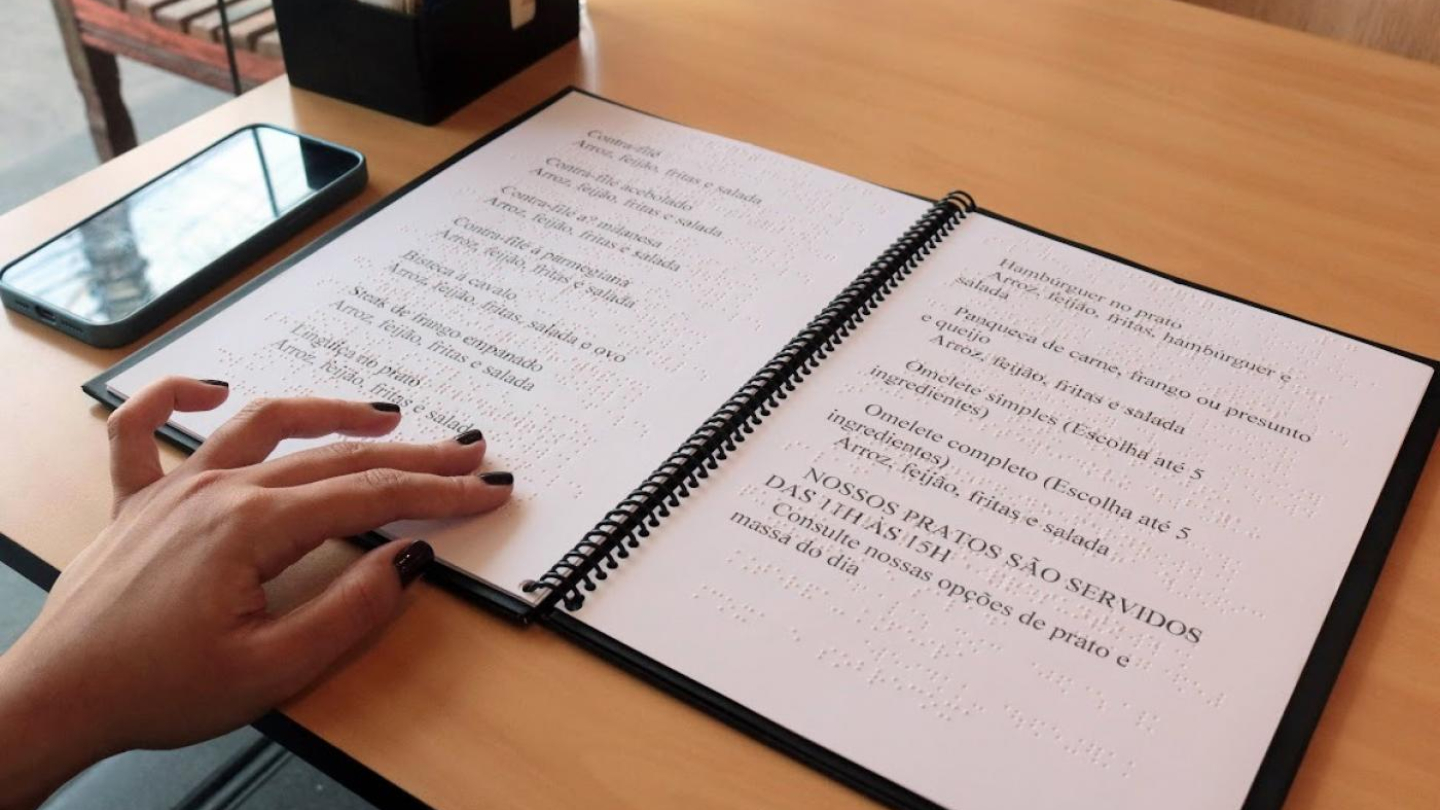 Contra-filé
Arroz, feijão, fritas e salada
Contra-filé acebolado
Arroz, feijão, fritas e salada
Contra-filé a? milanesa
Arroz, feijão, fritas e salada
Contra-filé á parmegiana
Arroz, feijão, fritas e salada
Bisteca á cavalo
Arroz, feijão, fritas, salada e ovo
Steak de frango empanado
Arroz, feijão, fritas e salada
Linguiça no prato
Arroz, feijão, fritas e salada
Hambúrguer no prato
Arroz, feijão, fritas, hambúrguer e
salada
Panqueca de carne, frango ou presunto
e queijo
Arroz, feijão, fritas e salada
Omelete simples (Escolha até 5
ingredientes)
Omelete completo (Escolha até 5
ingredientes)
Arroz, feijão, fritas e salada
NOSSOS PRATOS SÃO SERVIDOS
DAS 11H ÀS 15H
Consulte nossas opções de prato e
massa do dia